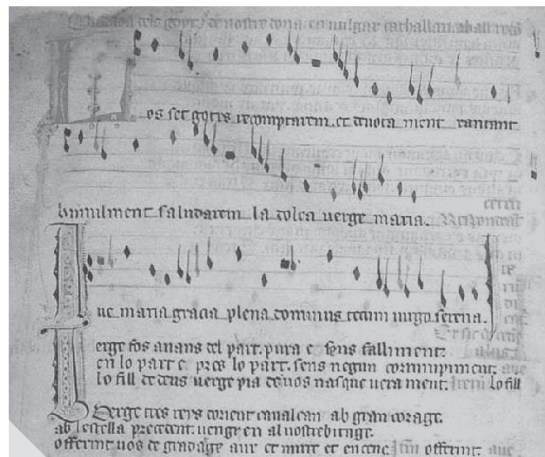 Ballada dels goytz de nostre dona en vulgar cathallan. a ball redon
Los set gotxs recomptarem. et devota ment cantant
humilment saludarem la dolca verge maria.
Ave maria gracia plena dominus tecum virgo serena.
Verge fos anans del part. pura e sens falliment.
en lo part e pres lo part. sens negun corrumpiment.
lo fill de deus verge pia de vos nasque vera ment. lo fill
Verge tres reys dorient cavalcan ab gran corage.
ab lestella precedent. vengren al vostrebitage.
offerint vos de gradatge aur et mirre et encenc. offerint